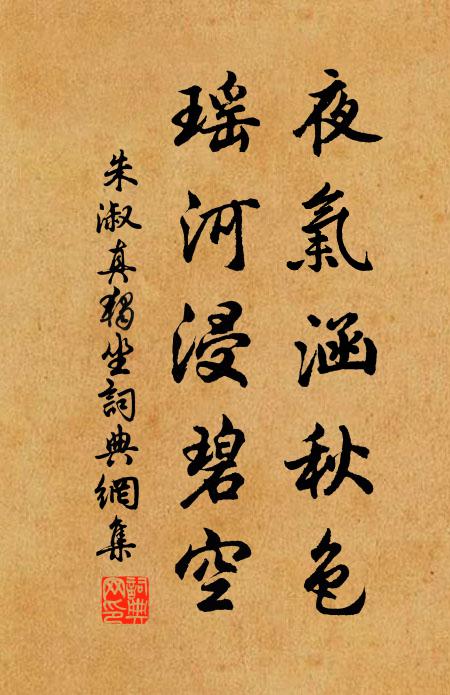 夜氣涵秋色
瑶河浸碧空
朱淑真獨坐詞典網集
詞典网印